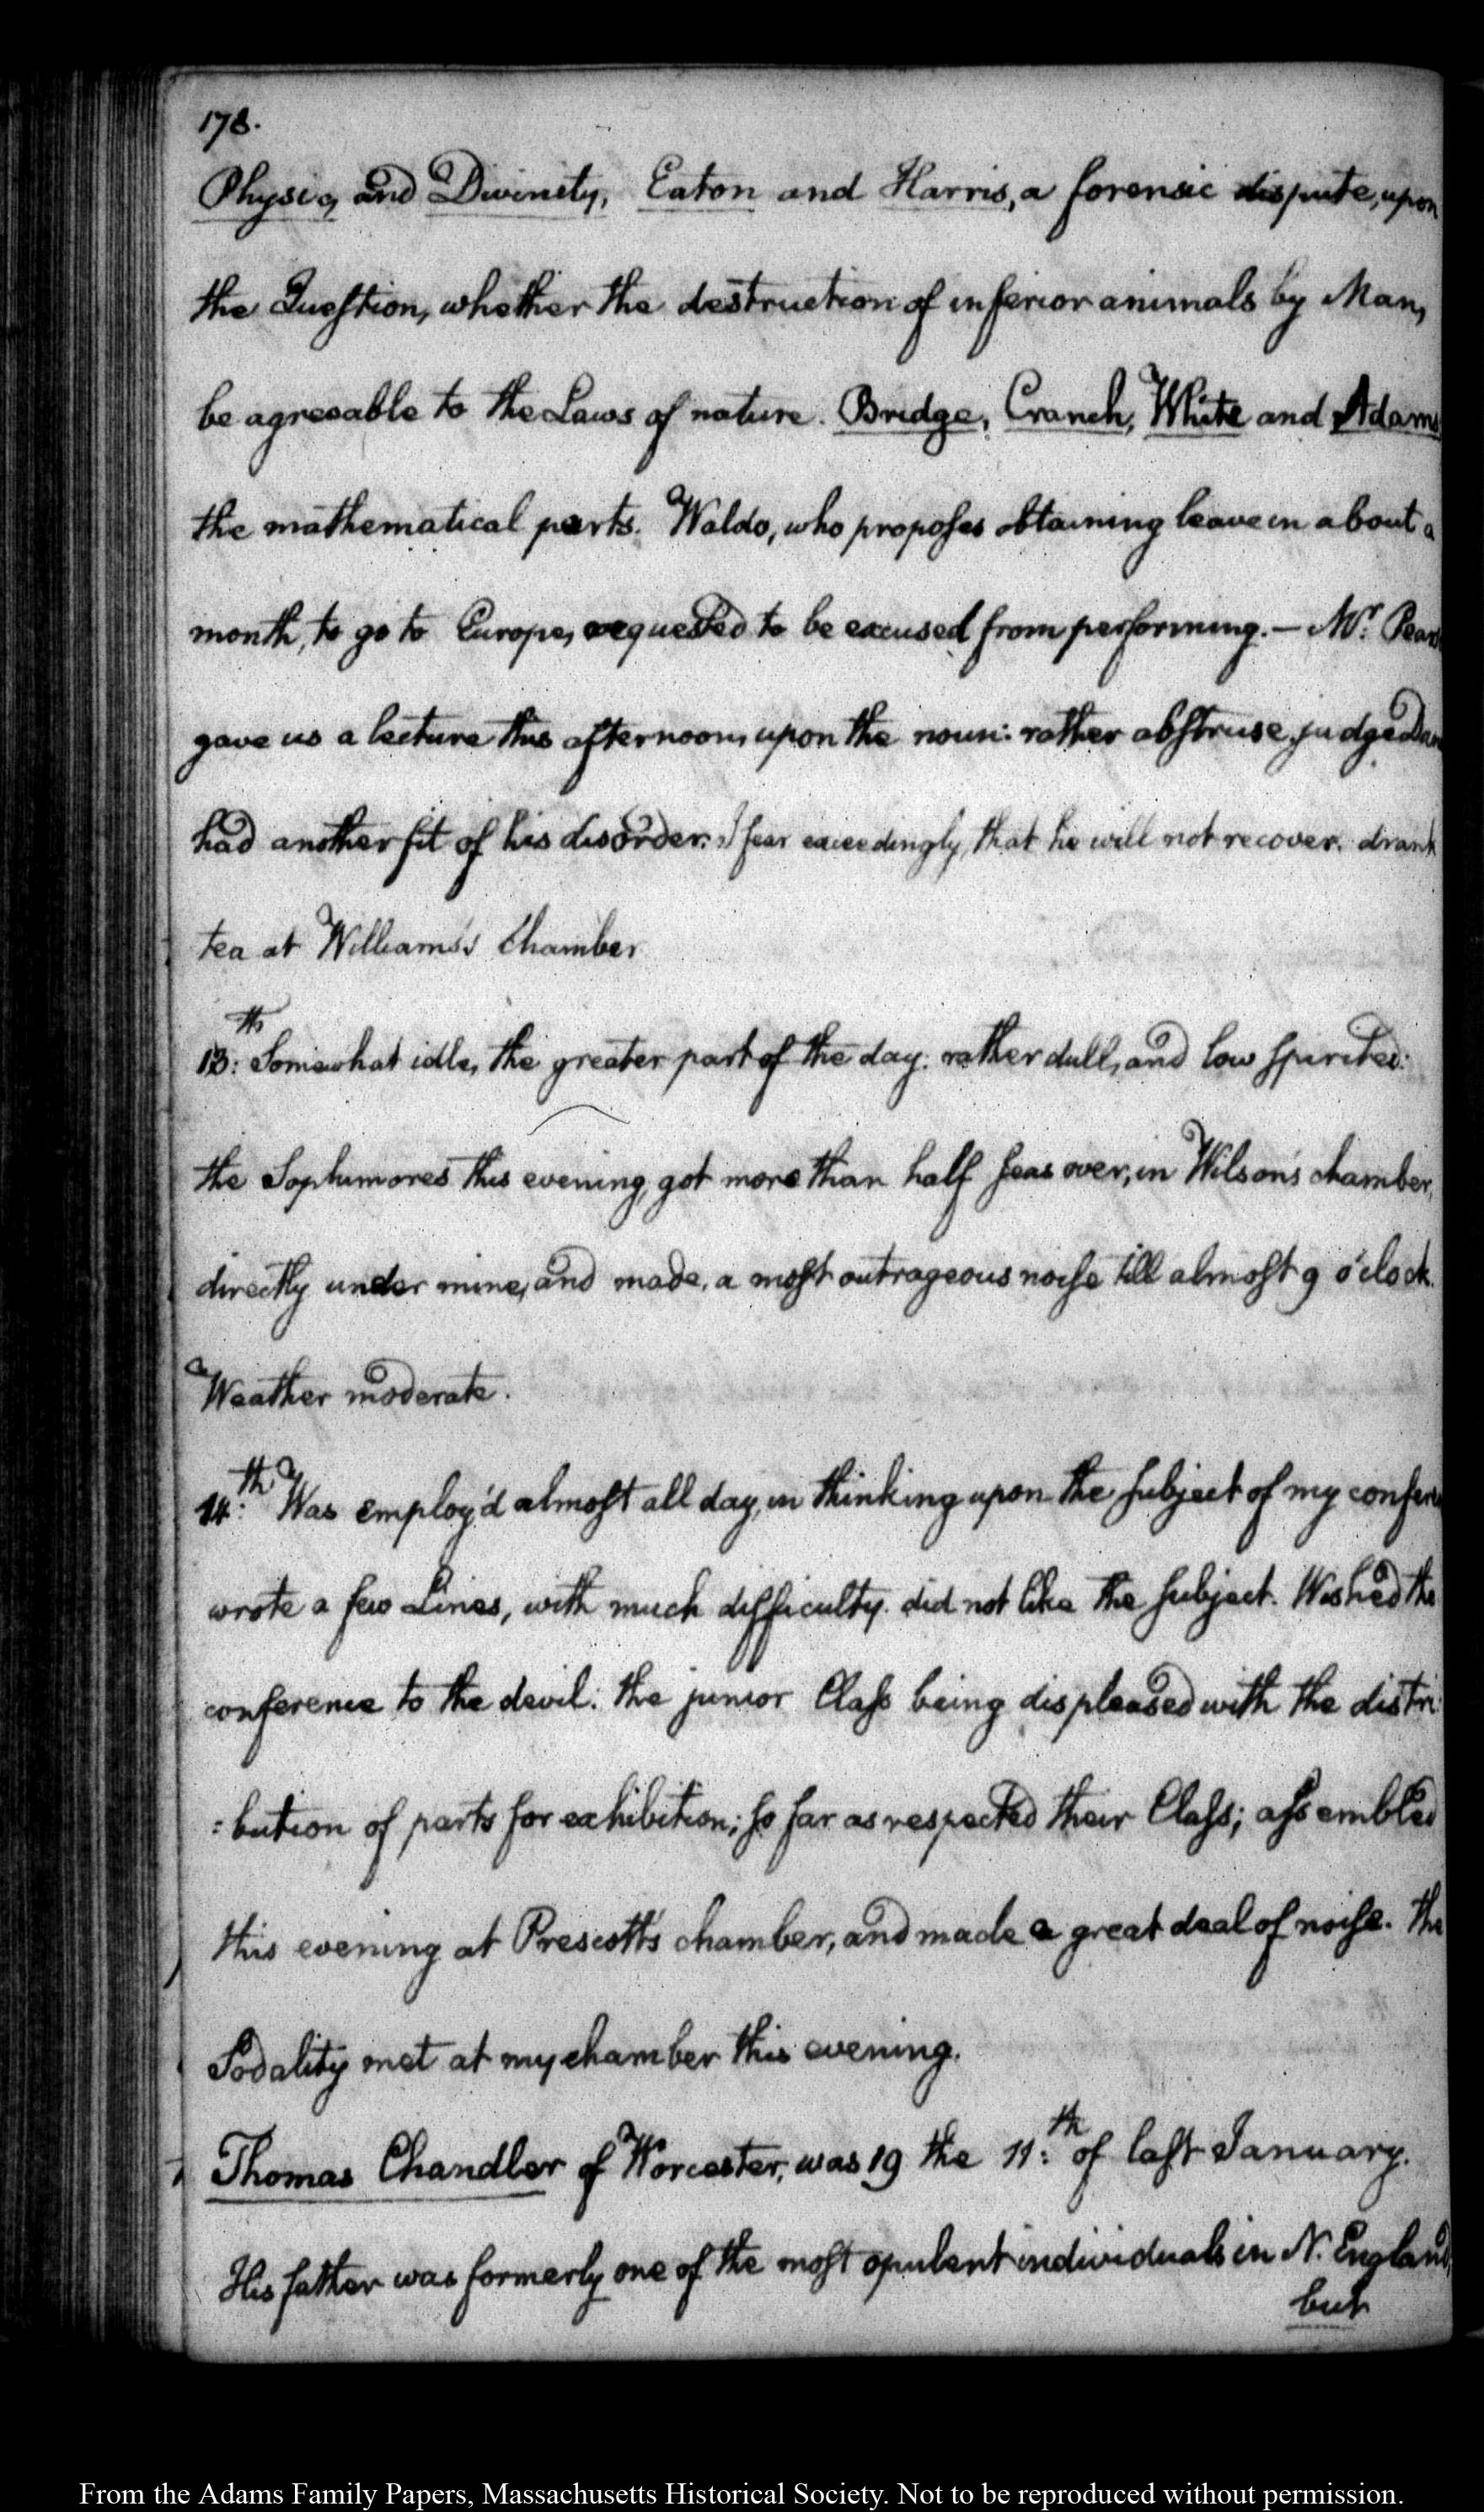 178.
Physic, and Divinity, Eaton and Harris, a forensic dispute, upon
the Question, whether the destruction of inferior animals by Man,
be agreeable to the Laws of nature. Bridge, Cranch, White and Adams
the mathematical parts. Waldo, who proposes obtaining leave in about a
month, to go to Europe, requested to be excused from performing. — Mr. Pears
gave us a lecture this afternoon, upon the noun: rather abstruse. judge Dan
had another fit of his disorder: I fear exceedingly, that he will not recover. drank
tea at Williams's Chamber
13:th Somewhat idle, the greater part of the day: rather dull, and low spirited:
the Sophimores this evening, got more than half seas over, in Wilson's chamber,
directly under mine, and made, a most outrageous noise till almost 9 o'clock.
Weather moderate.
14:th Was employ'd almost all day, in thinking upon the subject of my confere
wrote a few Lines, with much difficulty. did not like the subject. Wished the
conference to the devil. the junior Class being displeased with the distri:
:bution of parts for exhibition; so far as respected their Class; assembled
this evening at Prescott's chamber, and made a great deal of noise. The
Sodality met at my chamber this evening.
Thomas Chandler of Worcester, was 19 the 11:th of last January.
His father was formerly one of the most opulent individuals in N. England,
but
From the Adams Family Papers, Massachusetts Historical Society. Not to be reproduced without permission.